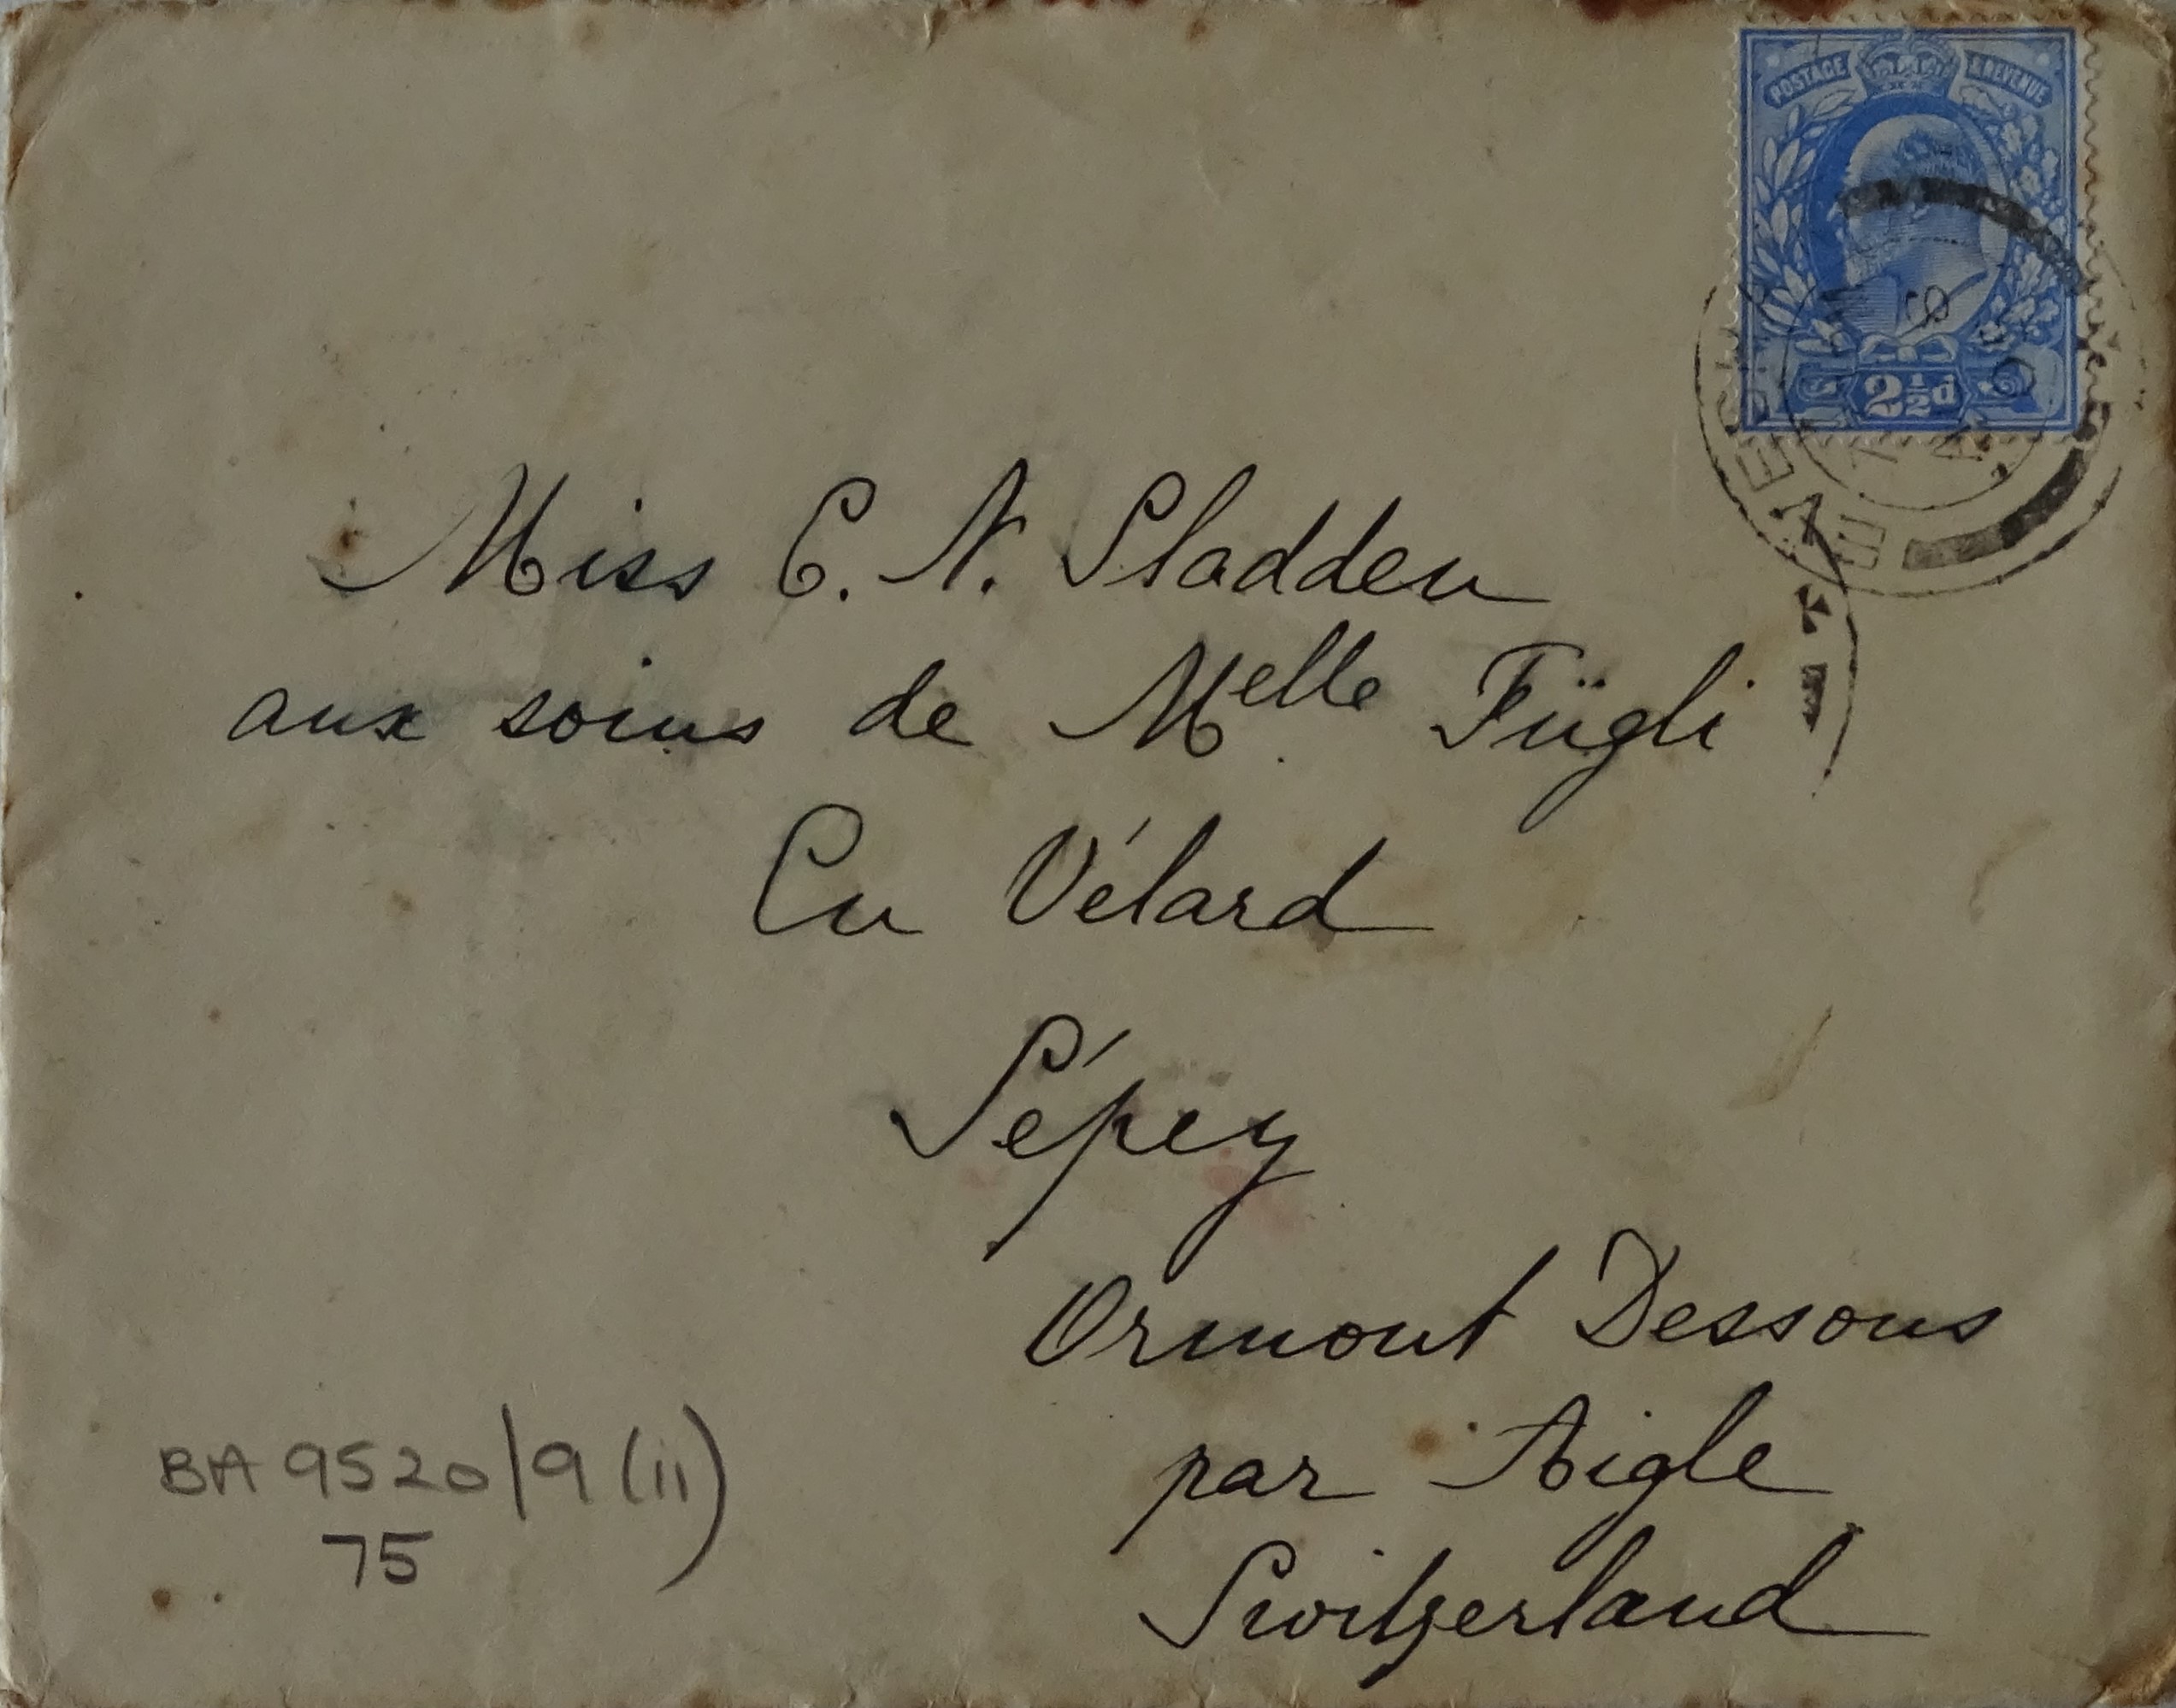 POSTAGE & REVENUE
2½d
EVESH
Miss C. N. Sladden
aux soins de Melle Fügli
En Vélard
Sépey
Ormont Dessous
par Aigle
Switzerland
BA 9520/9 (ii)
75